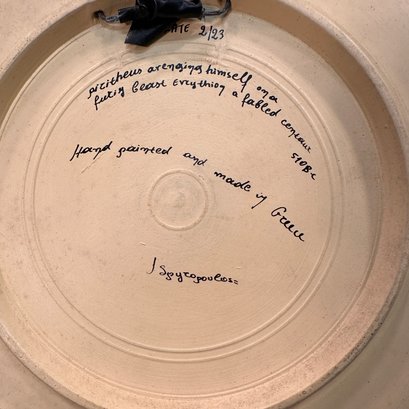 ATE 2/23
preitheus avenging himself on a
futiy beast Erythion a fabled centaur
510BC
Hand painted and made in Greece
J Spyropoulos